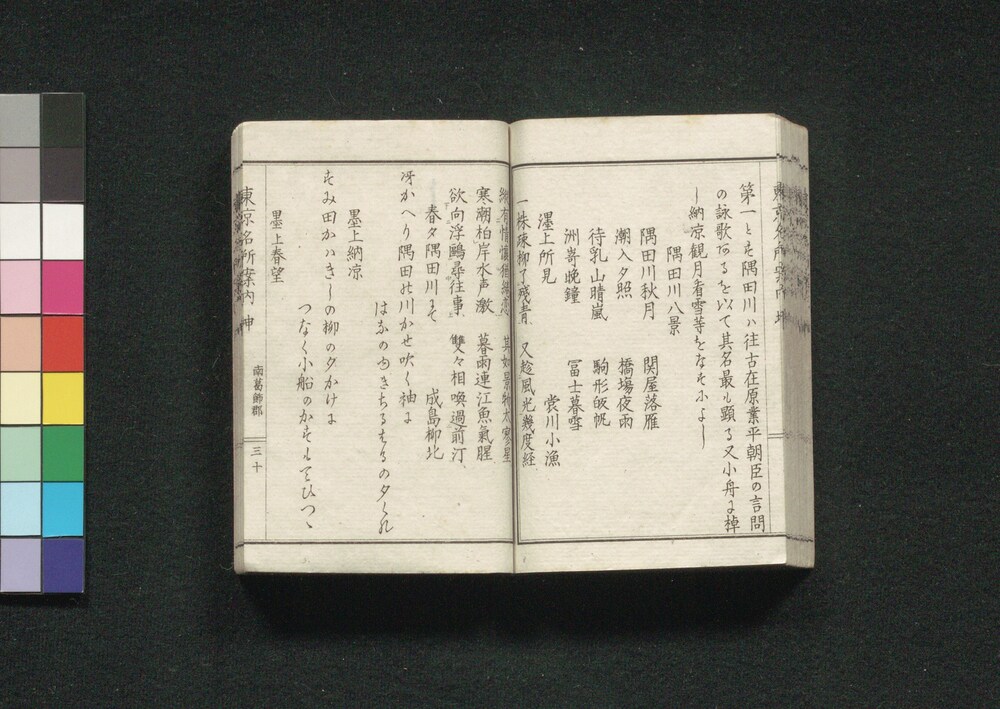 第一とす隅田川ハ往古在原業平朝臣の言問
の詠歌あるを以て其名最も顕る又小舟に棹
し納凉観月看雪等をなすによし
隅田川八景
隅田川秋月 関屋落雁
潮入夕照 橋場夜雨
待乳山晴嵐 駒形皈帆
洲嵜晩鐘 冨士暮雪
濹上所見 裳川小漁
一株疎柳了残青 又趁風光幾度経
寒潮柏岸水声激 暮雨連江魚氣腥
欲向浮鷗尋往事 雙々相喚過前汀
春夕隅田川にて 成島柳北
冴かへり隅田の川かせ吹く袖に
はなの
墨上納凉
すみ田かハきしの柳の夕かけに
つなく小船のかすもそひつゝ
墨上春望
東京名所案内 坤
南葛飾郡
三十